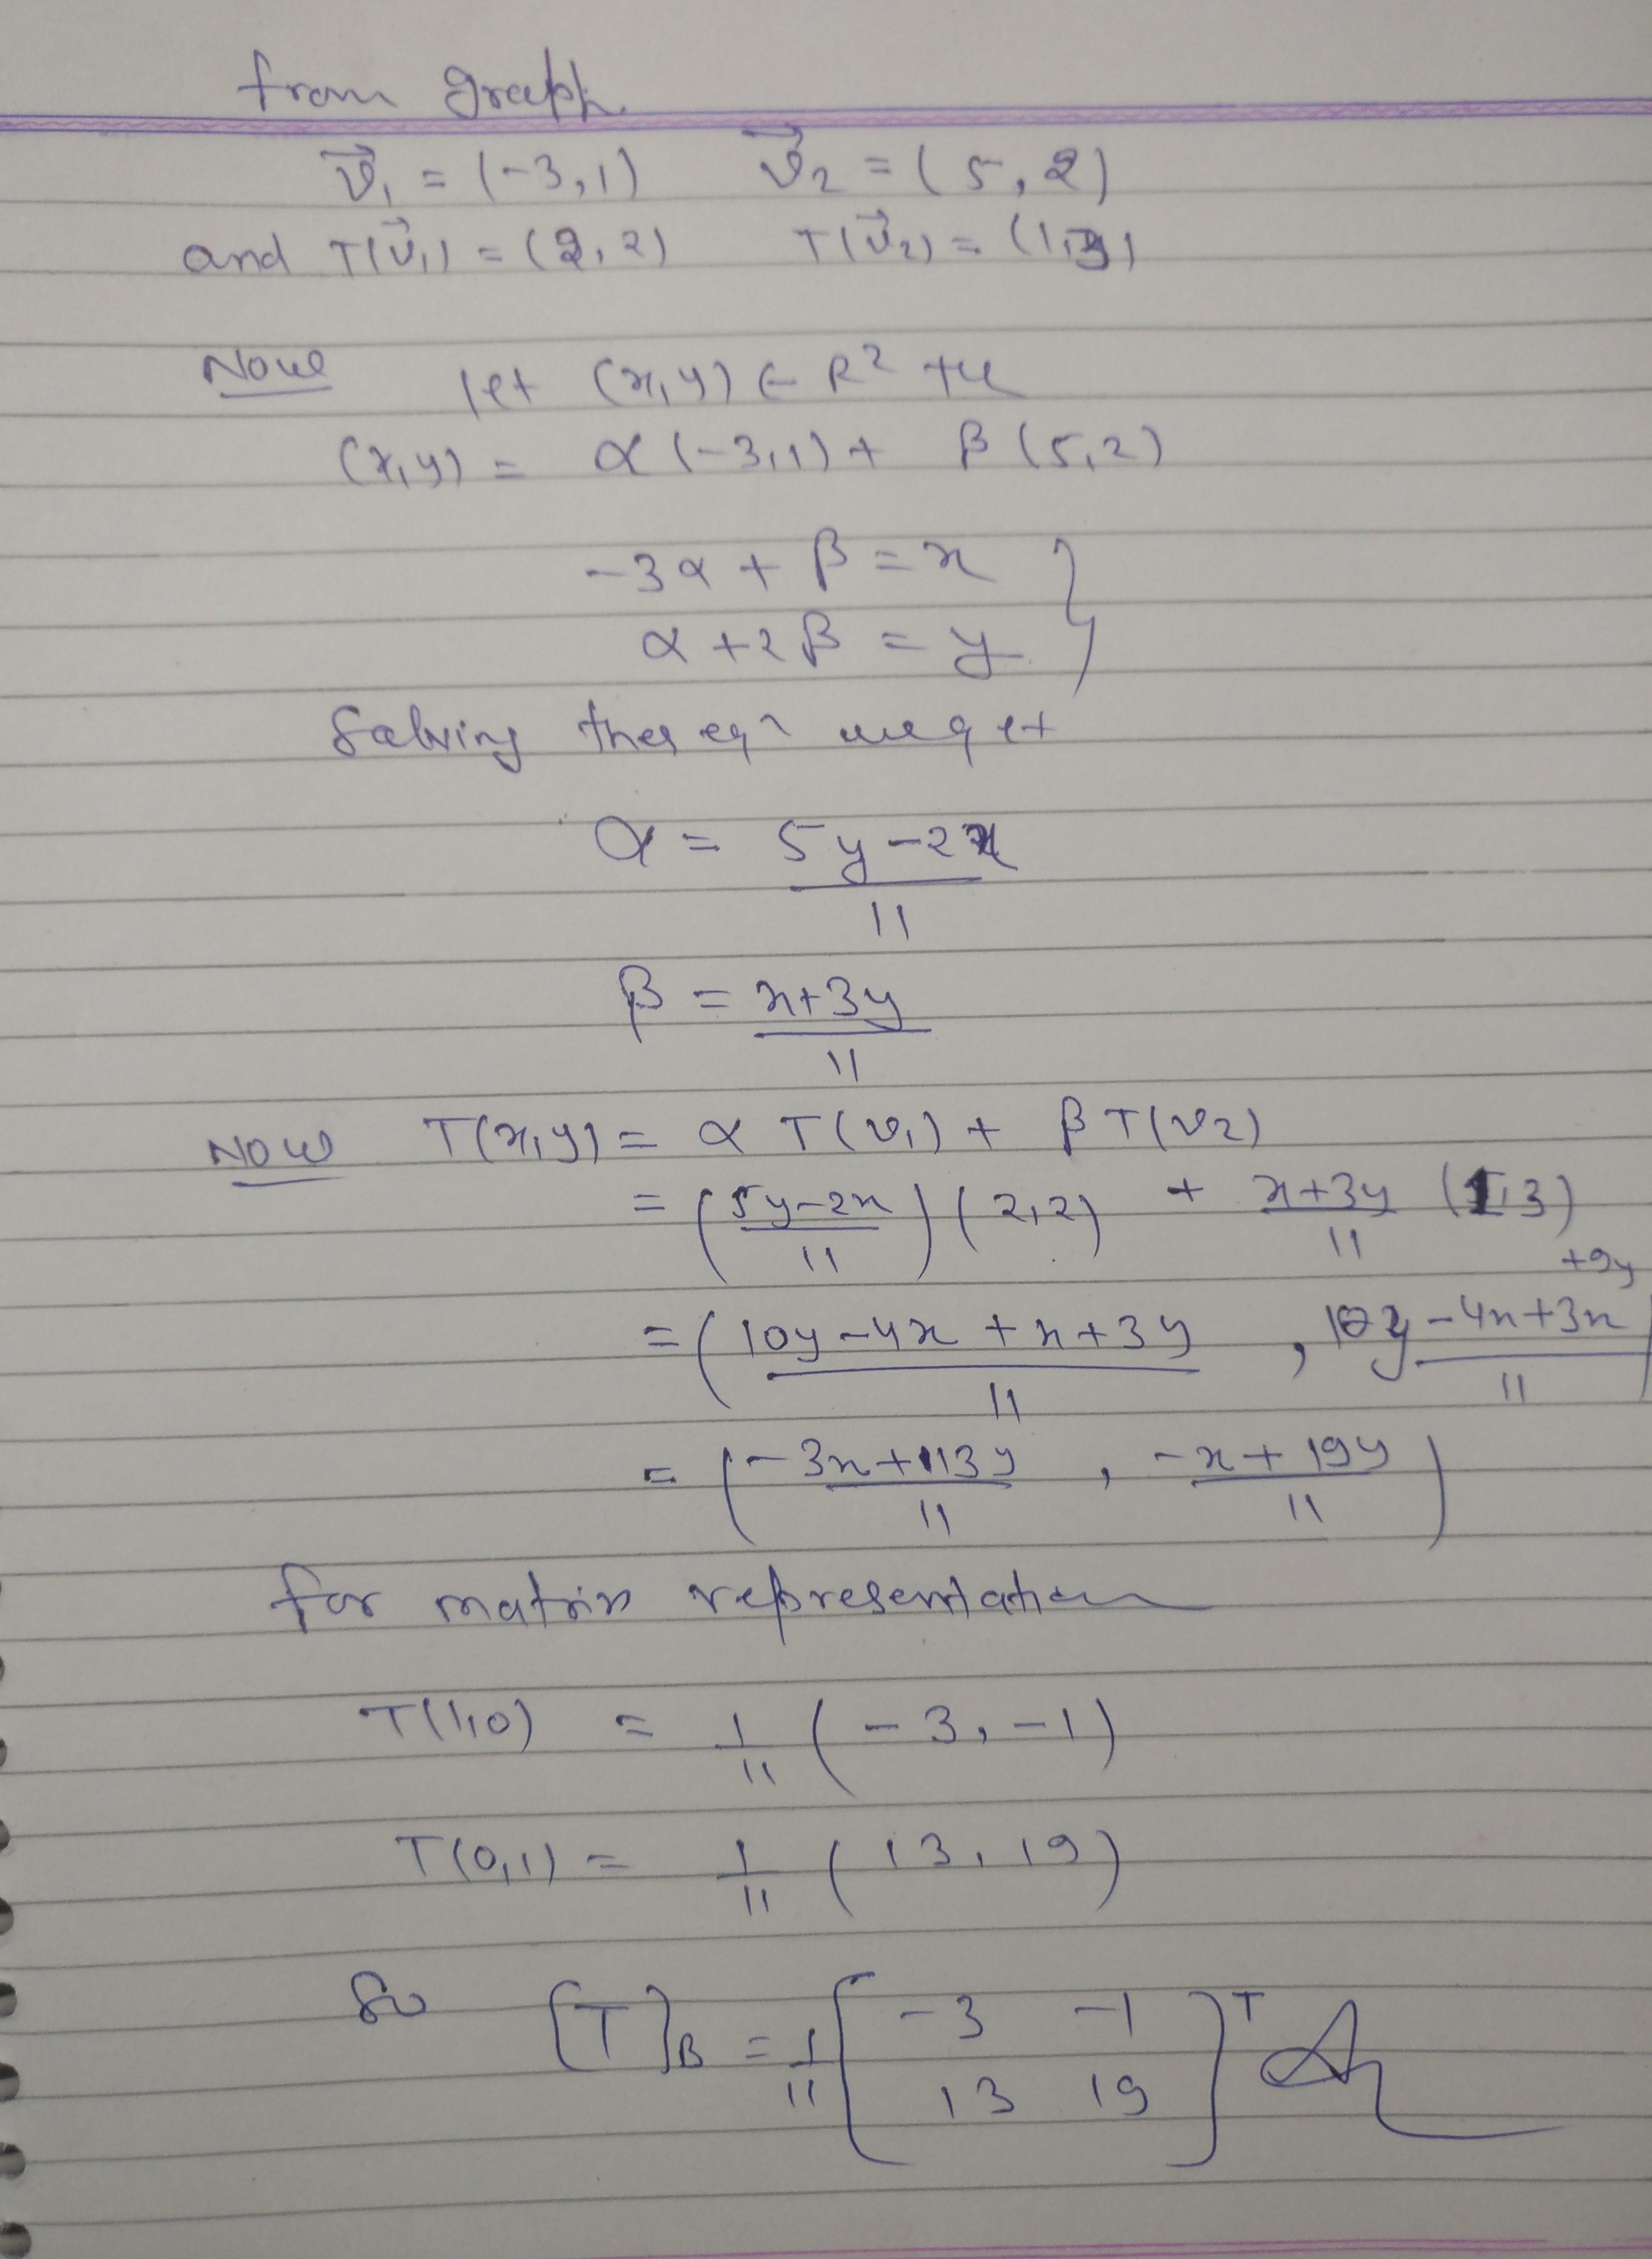 from graph
v⃗₁ = (-3,1) v⃗₂ = (5,2)
and T(v⃗₁) = (2,2) T(v⃗₂) = (1,3)
Now let (x,y) ∈ R² the
(x,y) = α(-3,1) + β(5,2)
-3α + β = x
α + 2β = y }
Solving thes eqⁿ we get
α = (5y-2x)/11
β = (x+3y)/11
Now T(x,y) = α T(v₁) + β T(v₂)
= ((5y-2x)/11)(2,2) + (x+3y)/11 (1,3)
= ((10y-4x+x+3y)/11, (10y-4x+3x+9y)/11)
= ((-3x+13y)/11, (-x+19y)/11)
for matrix representation
T(1,0) = 1/11 (-3,-1)
T(0,1) = 1/11 (13,19)
So [T]_B = 1/11 [-3 -1
13 19]ᵀ